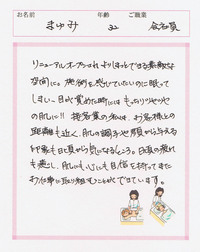 お名前 年齢 ご職業
まゆみ 32 会社員
リニューアルオープンされ、よりほっとできる素敵な
空間に。施術を感じていたいのに眠って
しまい、目が覚めた時にはもっちりツヤツヤ
のお肌に!! 接客業の私は、お客様との
距離も近く、肌の調子や顔から与える
印象も日頃から気になるところ。日頃の疲れ
も癒し、肌にも心にも自信を持ってまた
お仕事に取り組むことができています。